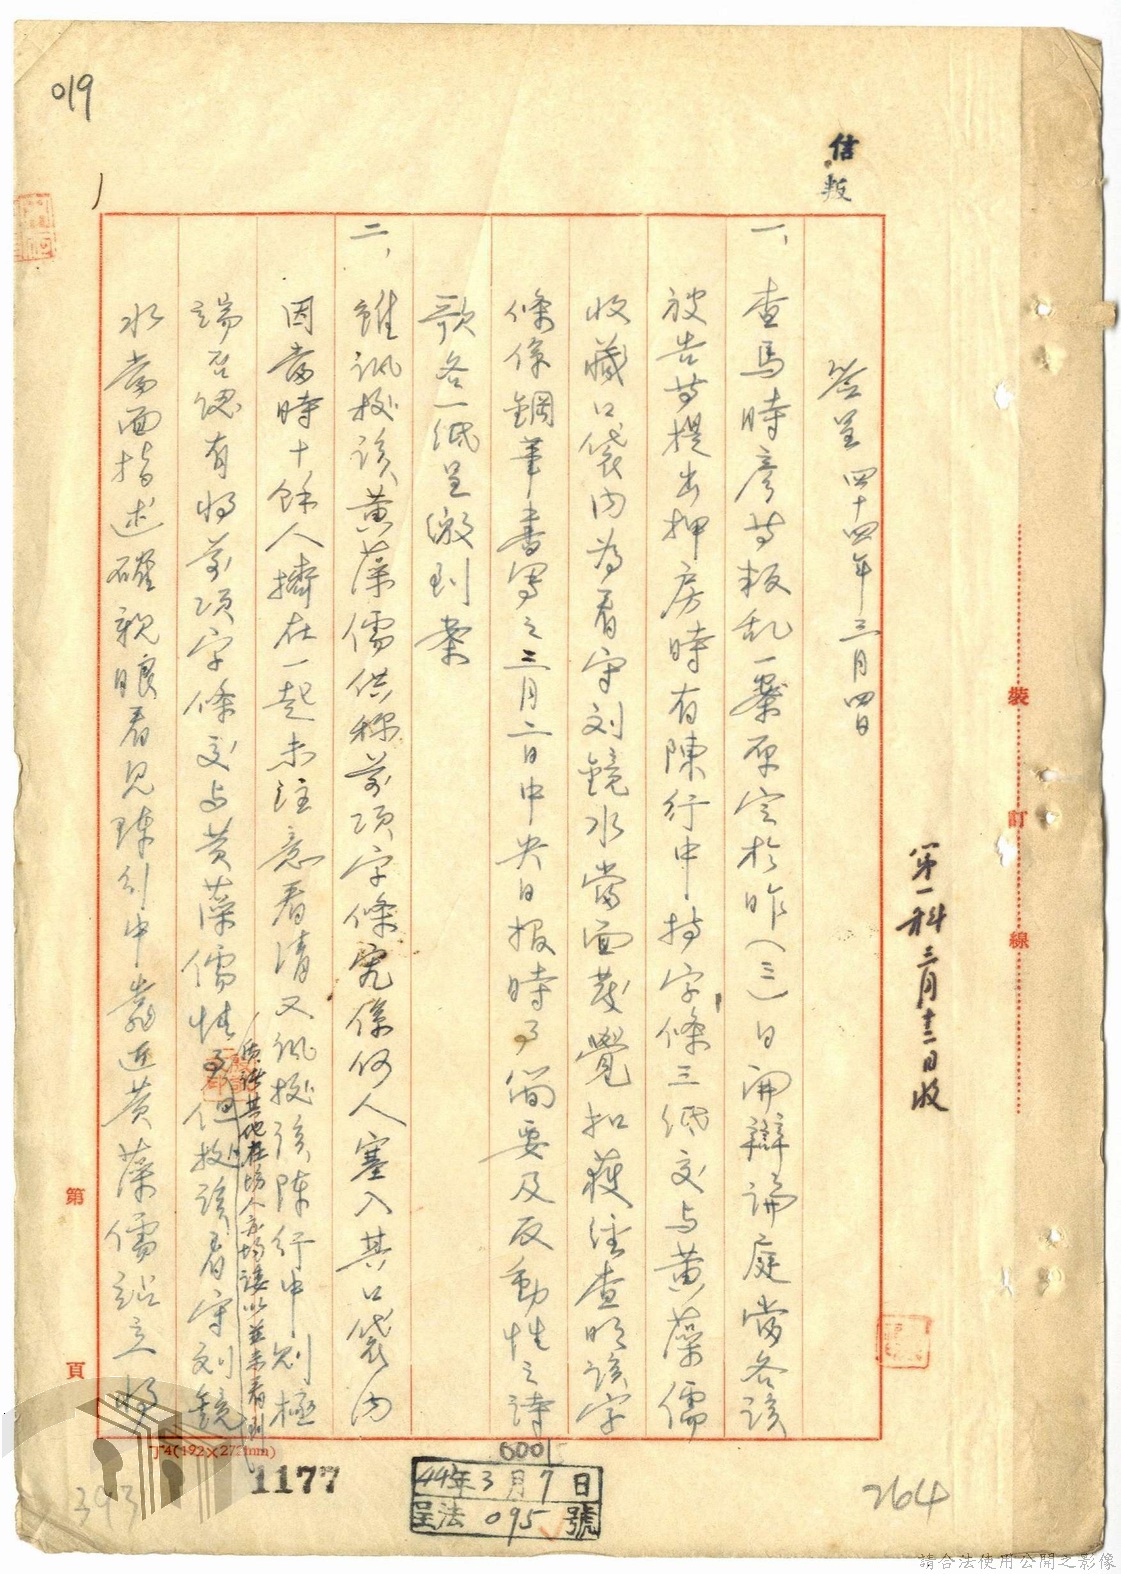 019
信
叛
簽呈 四十四年三月四日
第一科 三月十二日收
一、查馬時彥等叛乱一案原定於昨(三)日開辯論庭當各該
被告等提出押房時有陳行中持字條三紙交与黃藻儒
收藏口袋內為看守刘鏡水當面發覺扣獲經查明該字
條係鋼筆書寫之三月二日中央日报時事簡要及反動性之詩
歌各一紙呈繳到案
二、雖訊據該黃藻儒供称前項字條究係何人塞入其口袋內
因當時十餘人擠在一起未注意看清又訊據該陳行中則極
端否認有將前項字條交与黃藻儒情事
質諸其他在場人亦均諉以並未看到
但據該看守刘鏡
水當面指述確親眼看見陳行中靠近黃藻儒站立將
裝
訂
線
第
頁
丁4(192×272mm)
1177
6001
44年3月7日
呈法095號
393
264
請合法使用公開之影像